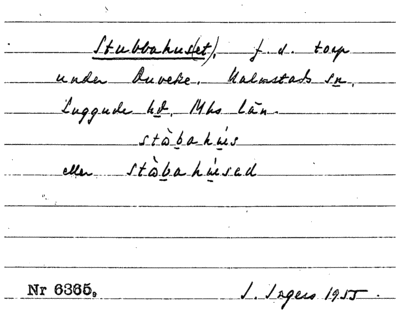 Stubbahus(et), f. d. torp
under Duveke. Halmstads sn.
Luggude hd. Mhs län.
stàbahús
eller stàbahúsad
Nr 6365. I. Ingers 1955.